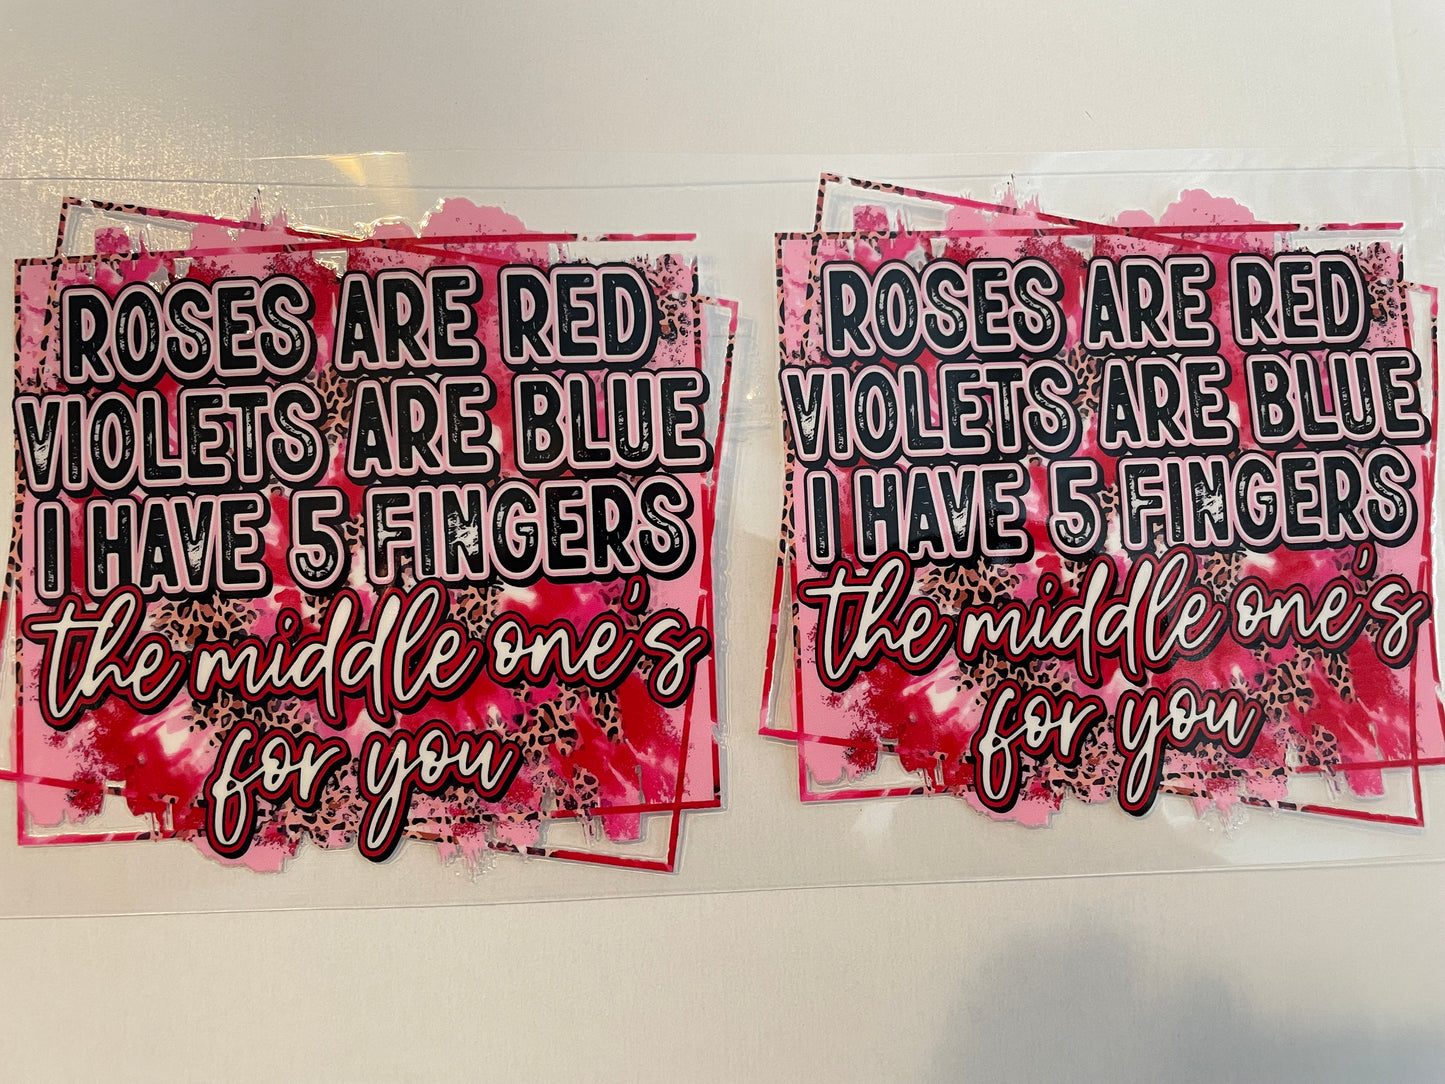 ROSES ARE RED
VIOLETS ARE BLUE
I HAVE 5 FINGERS
the middle one's
for you
ROSES ARE RED
VIOLETS ARE BLUE
I HAVE 5 FINGERS
the middle one's
for you